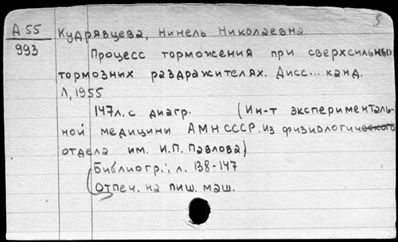 5
А 55 Кудрявцева, Нинель Николаевна
993 Процесс торможения при сверхсильных
тормозных раздражителях. Дисс... канд.
Л, 1955
147л. с диагр. (Ин-т эксперименталь-
ной медицины АМН СССР. Из физиологического
отдела им. И.П. Павлова)
Библиогр.: л. 138-147
Отпеч. на пиш. маш.